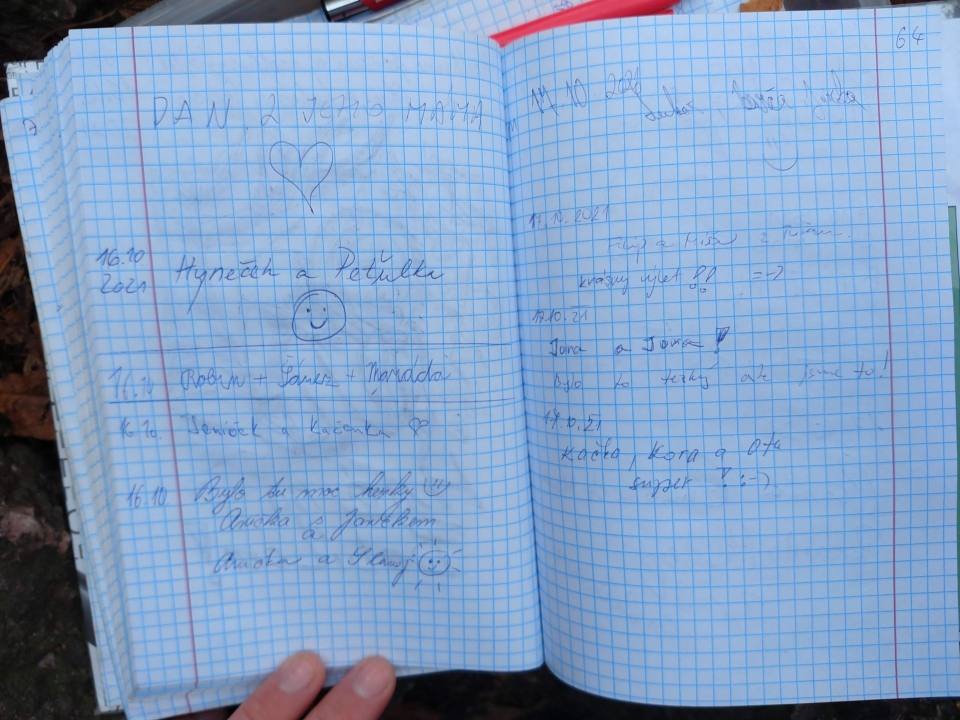 DAN 2 JEHO MÁMA
16.10 2021 Hyneček a Peťulka
16.10 Robin + +
16.10. Deniček a Kačenka
16.10 Bylo tu moc hezky
Anička s Janíčkem
a
Anička a
64
17.10 2021
17.10.2021
Filip a Míša z
krásný výlet !! =-2
17.10.21
Jana a Jana!
Bylo to těžký ale jsme tu!
17.10.21
Kačka, Kora a Ota
super! :-)